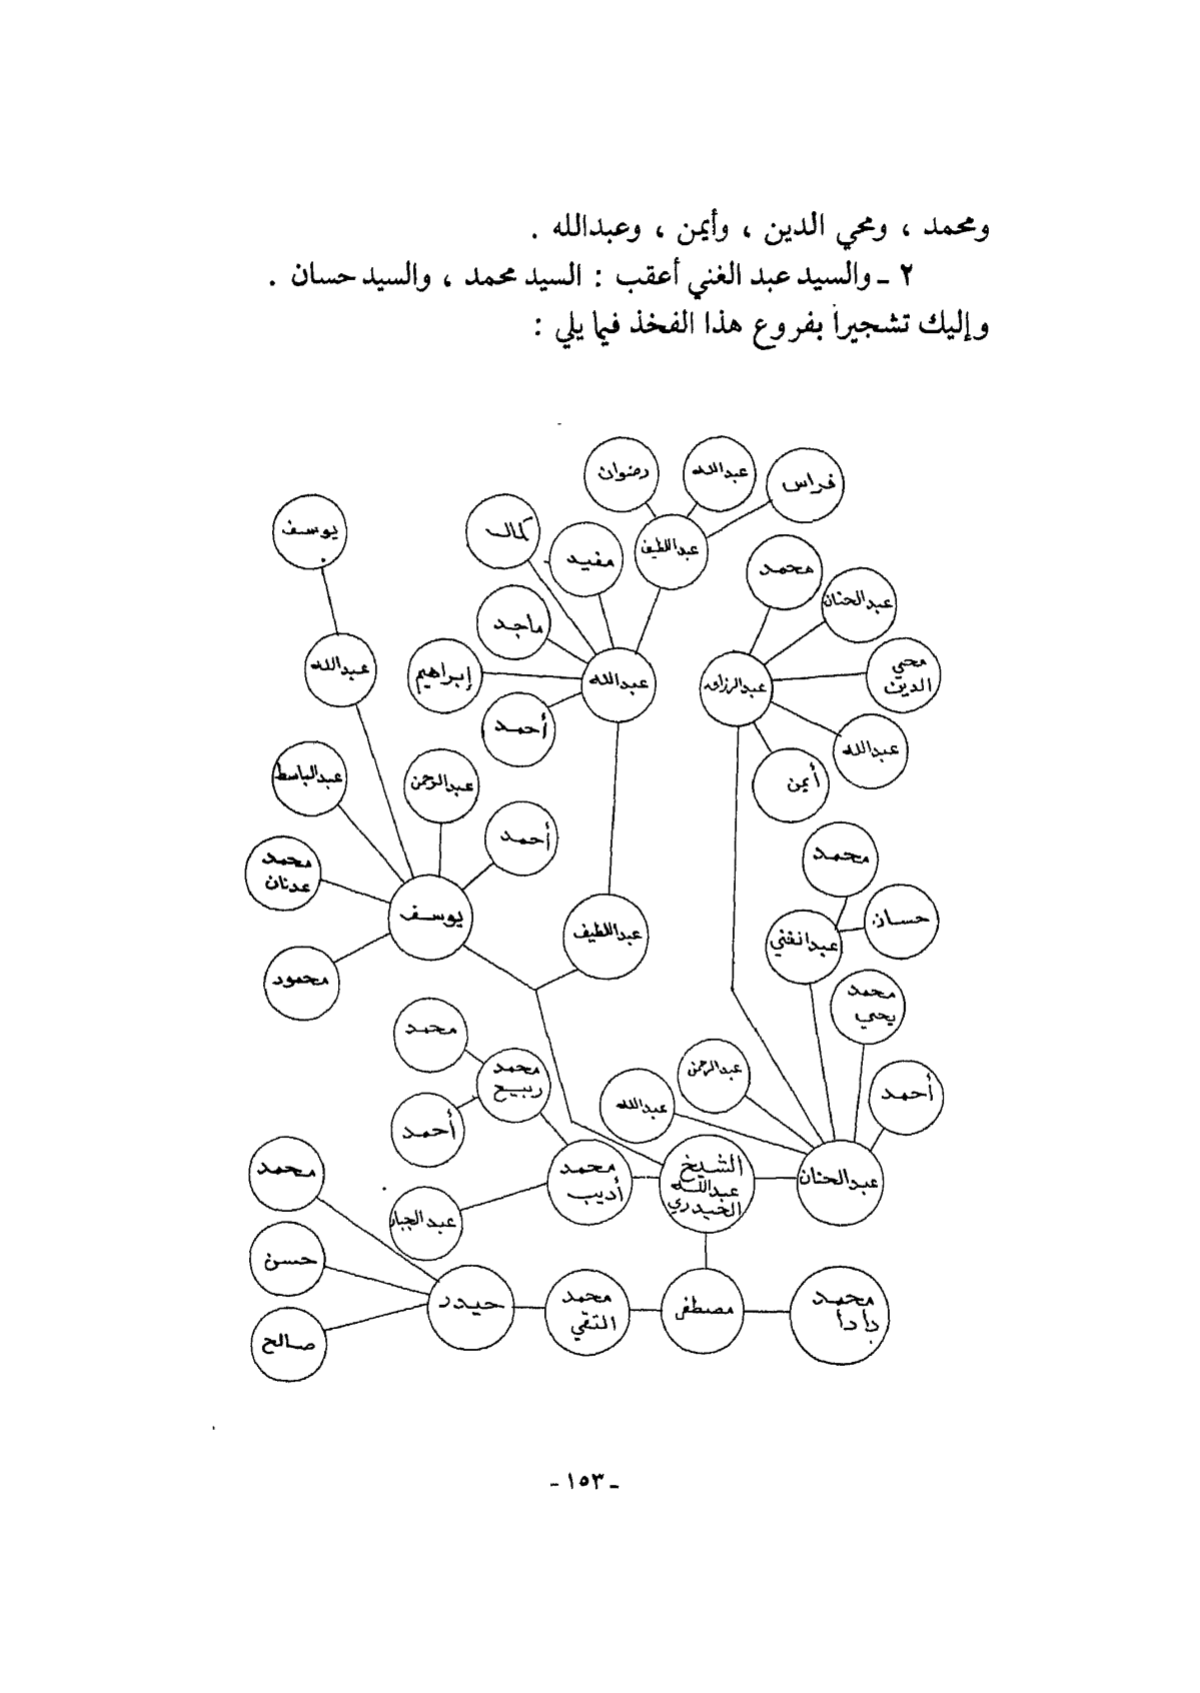 ومحمد ، ومحي الدين ، وأيمن ، وعبدالله .
٢ ـ والسيد عبد الغني أعقب : السيد محمد ، والسيد حسان .
وإليك تشجيراً بفروع هذا الفخذ فيما يلي :
رضوان
عبدالله
فراس
يوسف
كمال
مفيد
عبداللطيف
محمد
عبدالحنان
ماجد
عبدالله
إبراهيم
عبدالله
عبدالرزاق
محي
الدين
أحمد
عبدالله
عبدالباسط
عبدالرحمن
أيمن
أحمد
محمد
محمد
عدنان
يوسف
عبداللطيف
عبدالغني
حسان
محمود
محمد
يحي
محمد
محمد
ربيح
عبدالرحمن
عبدالله
أحمد
أحمد
محمد
محمد
أديب
الشيخ
عبدالله
الحيدري
عبدالحنان
عبدالجبار
حسن
حيدر
محمد
التقي
مصطفى
محمد
دأدأ
صالح
ـ ١٥٣ ـ